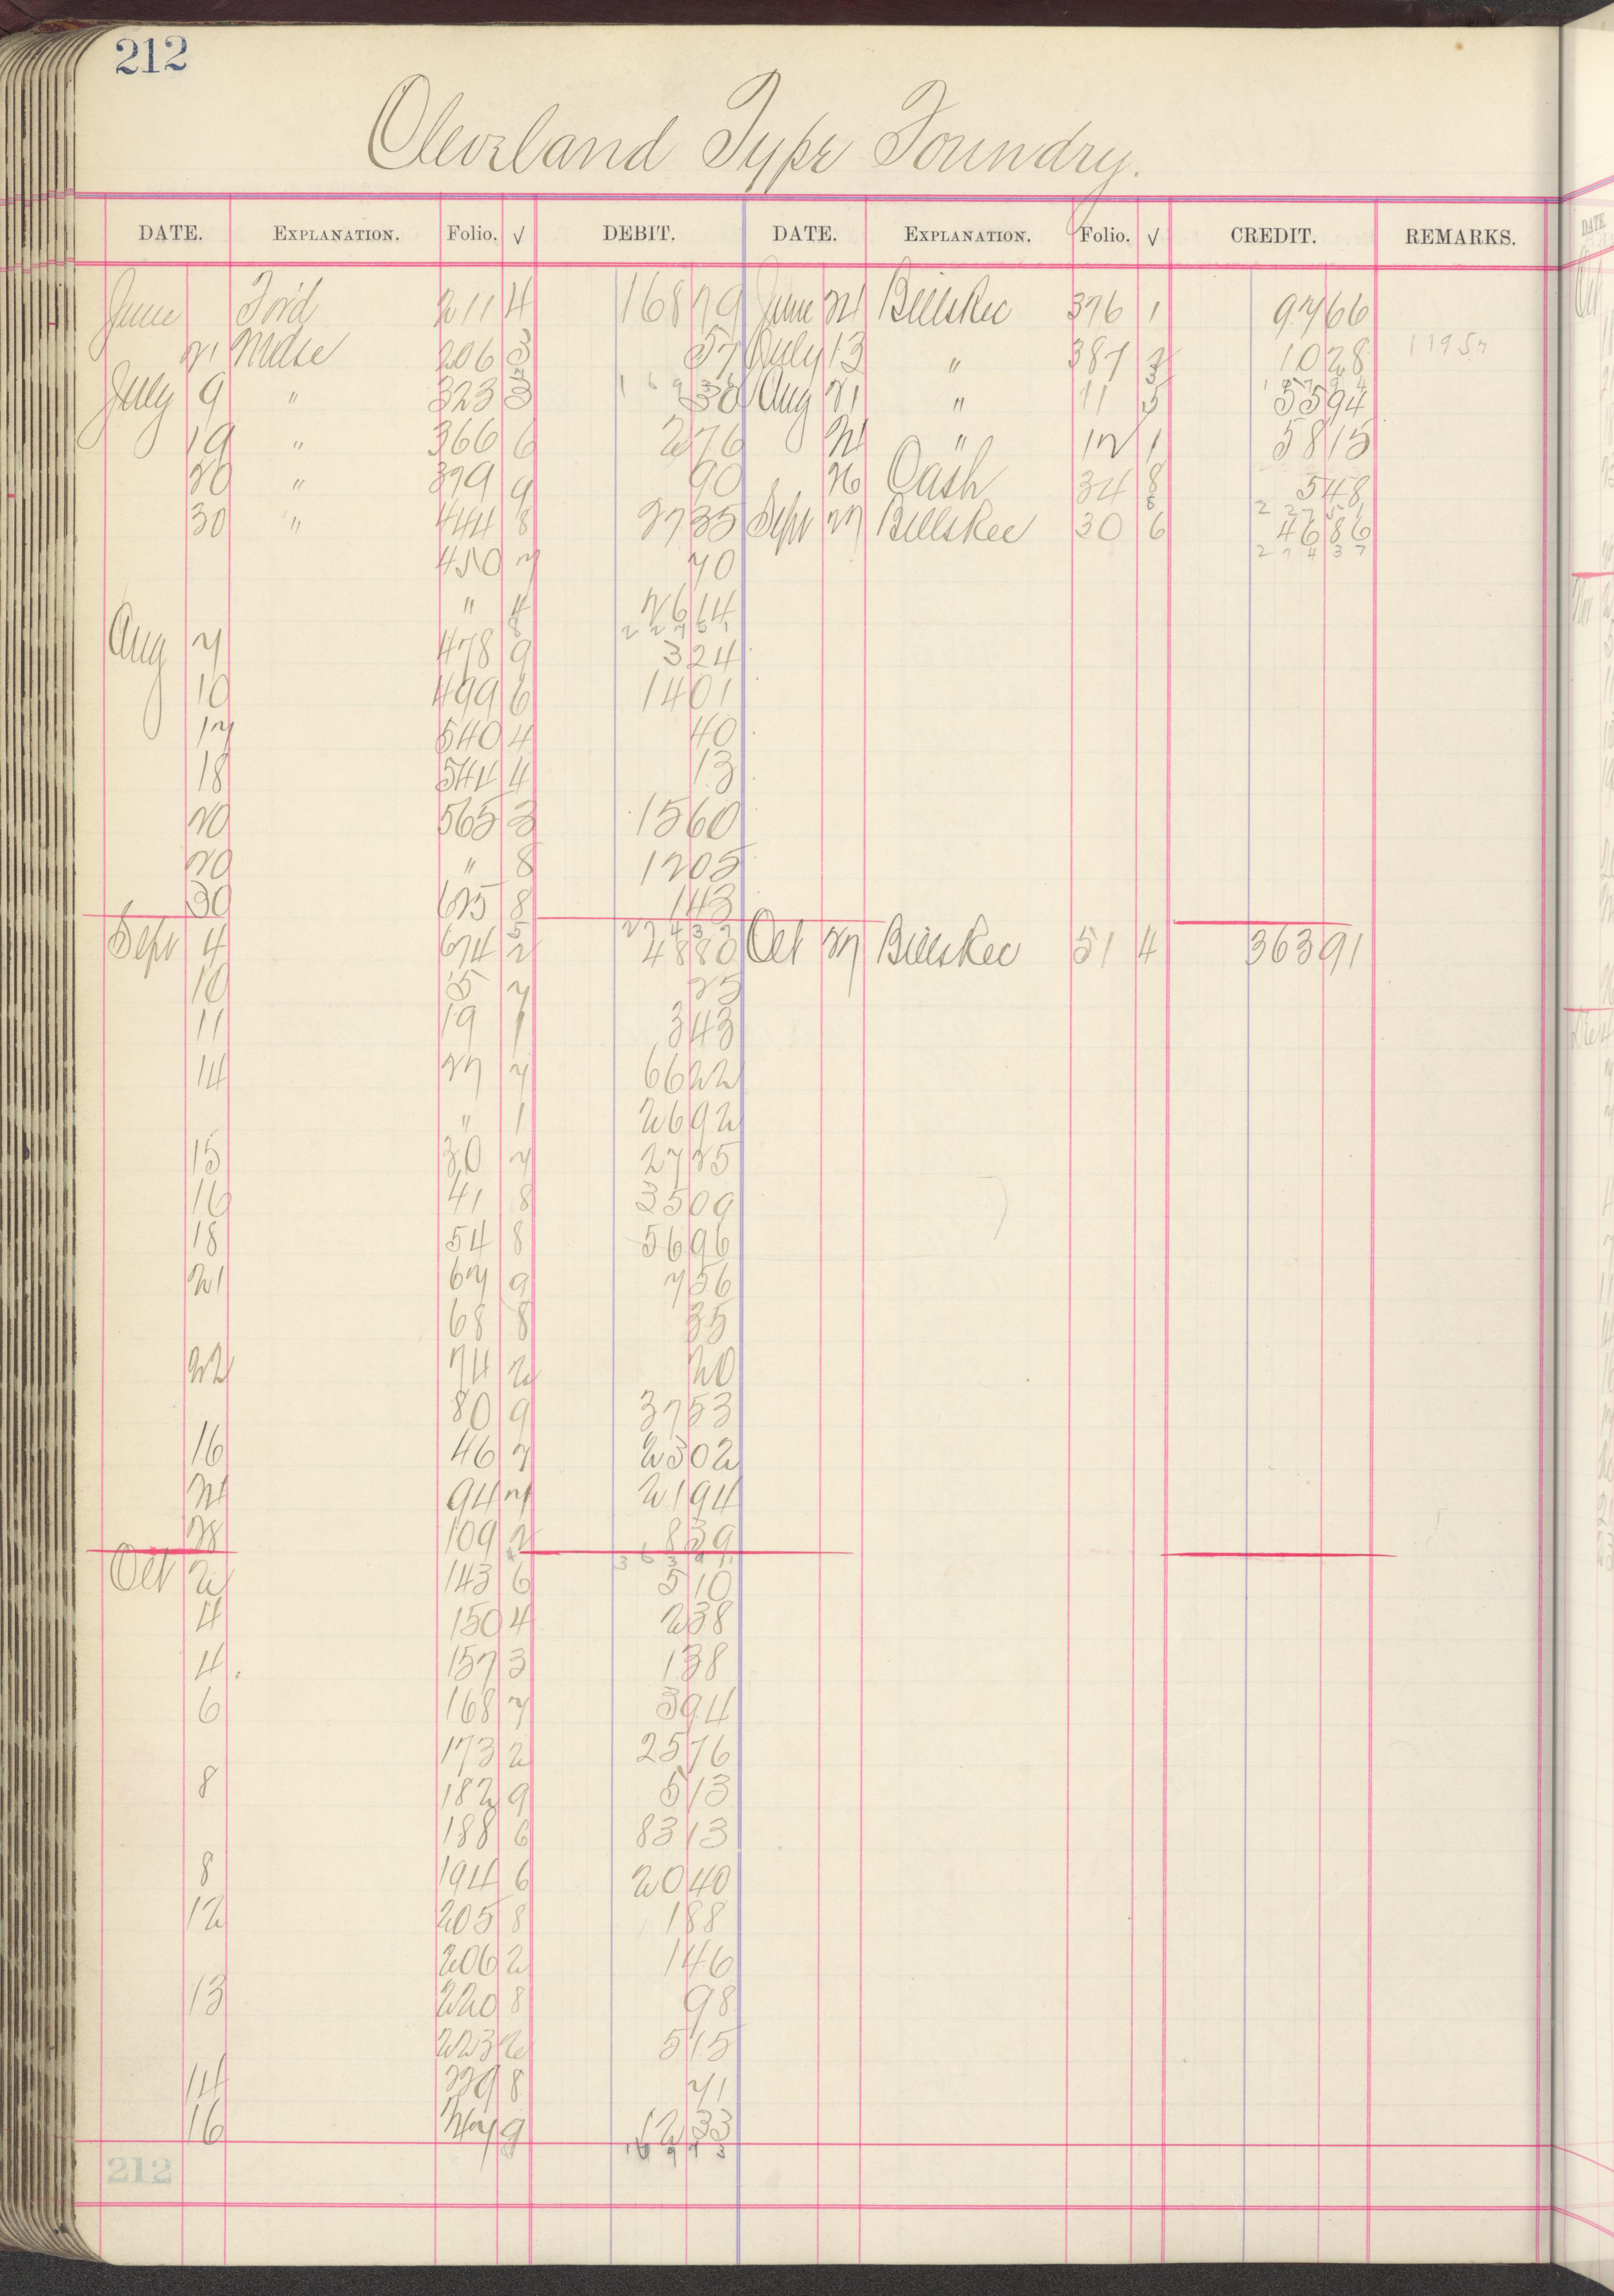 212
Cleveland Type Foundry.
DATE. EXPLANATION. Folio. √ DEBIT. DATE. EXPLANATION. Folio. √ CREDIT. REMARKS.
June Ford 211 4 16879 June 24 Billskee 376 1 9766
Mdse 206 3 57 July 13 " 387 1028
July 9 " 323 3 Aug 21 " 11 5594
19 " 366 6 276 " 12 1 5815
20 " 399 9 90 26 Cash 34 8 548
30 " 444 8 3735 Sept 27 Billskee 30 6 4686
450 7 70
" 4 2614
Aug 7 478 9 324
10 499 6 1401
17 540 4 40
18 4 13
20 565 3 1560
20 " 8 1205
30 8 143
Sept 4 2 4880 Oct 27 Billskee 51 4 36391
10 5 7
11 19 343
14 27 7 6622
" 1 2692
15 30 7 2725
16 41 8 3509
18 54 8 5696
21 67 9 756
68 8 35
22 74 2 20
80 9 3753
16 46 7 2502
24 94 7 2194
28 109 2
Oct 2 143 6 510
4 150 4 238
4. 157 3 138
6 168 7 394
173 2 2576
8 182 9 513
188 6 8313
8 194 6 2040
12 205 8 188
206 2 146
13 220 8 98
223 2 515
14 239 8 71
16 9 1233
212